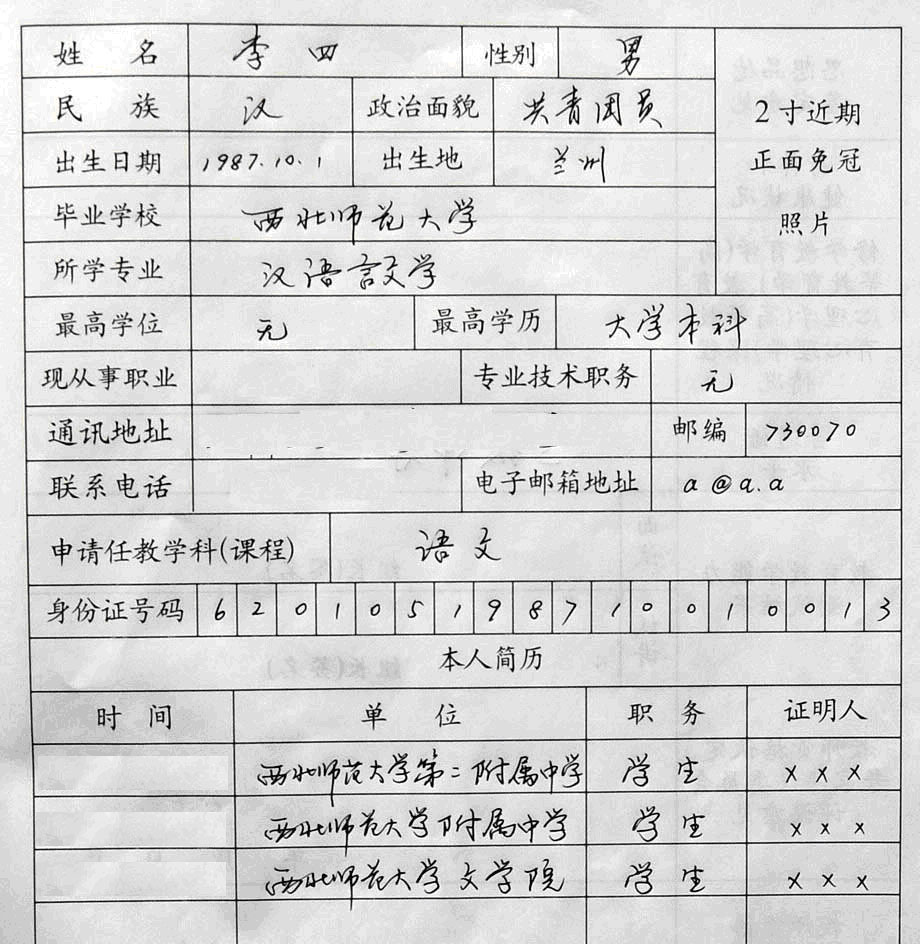 姓 名 李四 性别 男
民 族 汉 政治面貌 共青团员 2寸近期
出生日期 1987.10.1 出生地 兰州 正面免冠
毕业学校 西北师范大学 照片
所学专业 汉语言文学
最高学位 无 最高学历 大学本科
现从事职业 专业技术职务 无
通讯地址 邮编 730070
联系电话 电子邮箱地址 a@a.a
申请任教学科(课程) 语文
身份证号码 620105198710010013
本人简历
时 间 单 位 职 务 证明人
西北师范大学第二附属中学 学生 xxx
西北师范大学附属中学 学生 xxx
西北师范大学文学院 学生 xxx